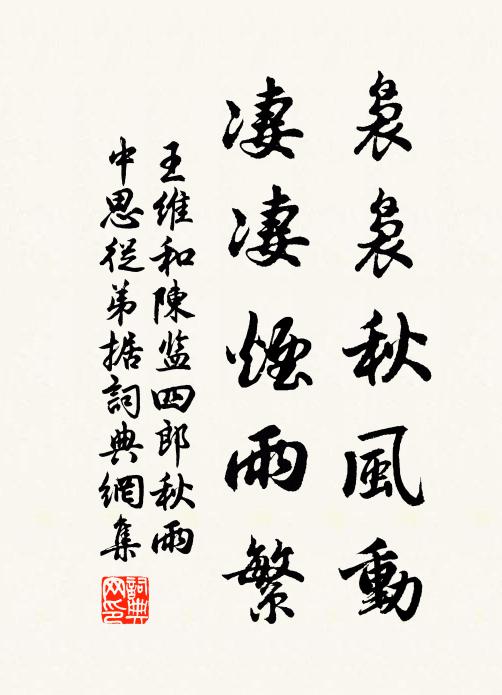 裊裊秋風動
凄凄煙雨繁
王維和陳監四郎秋雨
中思從弟据詞典網集
詞典网印